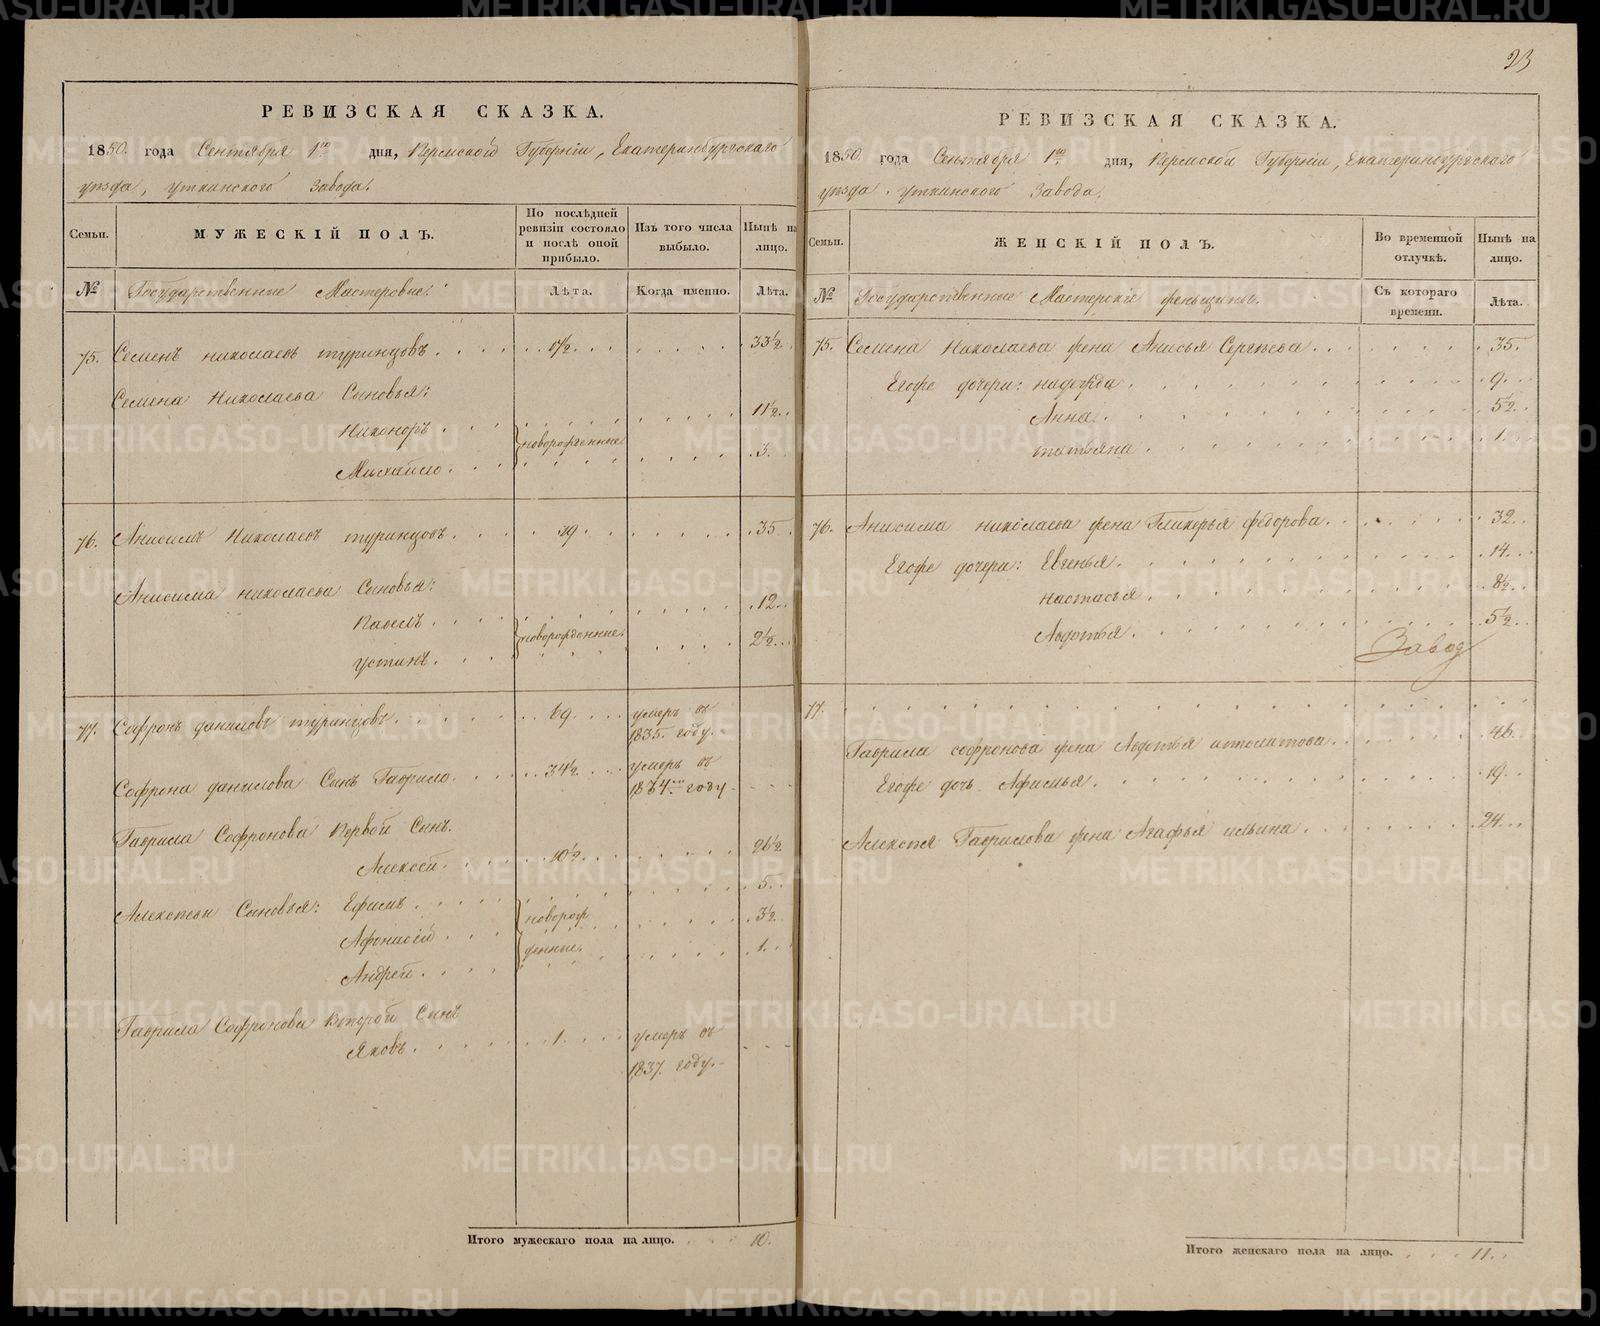 23
РЕВИЗСКАЯ СКАЗКА.
1850. года Сентября 1го дня, Пермской Губерніи, Екатеринбургскаго
уѣзда, Уткинскаго Завода.
Семьи.
МУЖЕСКІЙ ПОЛЪ.
По послѣдней ревизіи состояло и послѣ оной прибыло.
Изъ того числа выбыло.
Нынѣ на лицо.
№ Государственные Мастеровые. Лѣта. Когда именно. Лѣта.
75. Семенъ Николаевъ Туринцовъ. 17½. 33½.
Семена Николаева Сыновья:
Никоноръ. 11½.
новорожденные
Михайло. 3.
76. Анисимъ Николаевъ Туринцовъ. 19. 35.
Анисима Николаева Сыновья:
Павелъ. 12.
новорожденные.
Устинъ. 2½.
77. Софронъ Даниловъ Туринцовъ. 69. умеръ въ
1835. году.
Софрона Данилова Сынъ Гаврило. 34½. умеръ въ
году
Гаврила Софронова Первой Сынъ.
Алексей. 10½. 26½.
Алексеевы Сыновья: Ефимъ. 5.
Афонасій новорож 3½.
Андрей. денные. 1.
Гаврила Софронова Второй Сынъ
Яковъ. 1. умеръ въ
1837. году.
Итого мужескаго пола на лицо. 10.
РЕВИЗСКАЯ СКАЗКА.
1850 года Сентября 1го дня, Пермской Губерніи, Екатеринбургскаго
уѣзда, Уткинскаго Завода.
Семьи.
ЖЕНСКІЙ ПОЛЪ.
Во временной отлучкѣ.
Нынѣ на лицо.
№ Государственные Мастерскіе женьщины. Съ котораго времени. Лѣта.
75. Семена Николаева жена Анисья Сергѣева. 35.
Егоже дочери: Надежда. 9.
Анна. 5½.
Татьяна 1.
76. Анисима Николаева жена Гликерья Федорова. 32.
Егоже дочери: Евгенья. 14.
Настасья. 8½.
Авдотья. 5½.
Завод
77.
Гаврила Софронова жена Авдотья Ипполитова. 46.
Егоже дочь Афимья. 19.
Алексея Гаврилова жена Агафья Ильина. 24.
Итого женскаго пола на лицо. 11.
METRIKI.GASO-URAL.RU